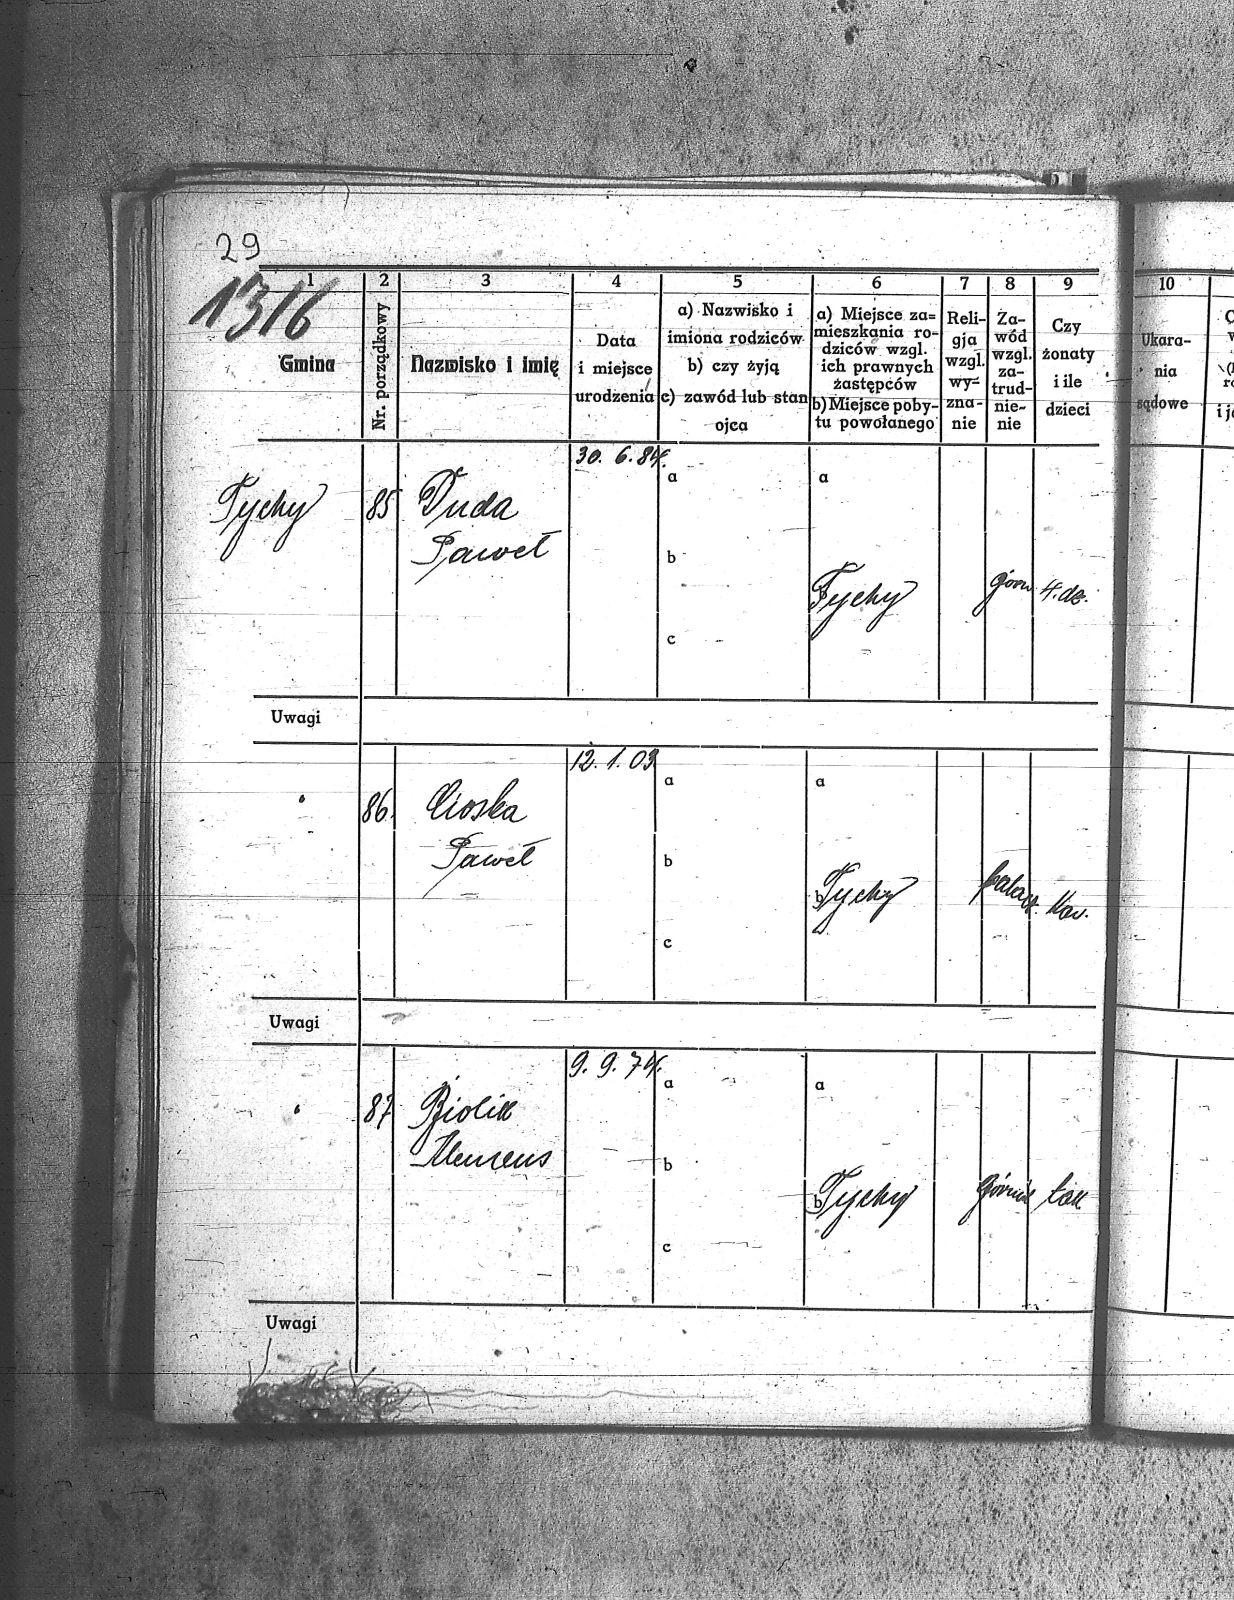 29
1316
1 2 3 4 5 6 7 8 9 10
Gmina
Nr. porządkowy
Nazwisko i imię
Data
i miejsce
urodzenia
a) Nazwisko i
imiona rodziców
b) czy żyją
c) zawód lub stan
ojca
a) Miejsce za=
mieszkania ro-
dziców wzgl.
ich prawnych
zastępców
b) Miejsce poby-
tu powołanego
Reli-
gja
wzgl.
wy=
zna-
nie
Za-
wód
wzgl.
za-
trud-
nie-
nie
Czy
żonaty
i ile
dzieci
Ukara-
nia
sądowe
i
Tychy 85 Duda 30. 6. 84. a a
Paweł b
b Tychy górn 4. dz.
c
Uwagi
" 86. Cioska 12. 1. 09 a a
Paweł b
b Tychy Kaw.
c
Uwagi
" 87 Biolik 9. 9. 74. a a
Klemens b
b Tychy górnik
c
Uwagi